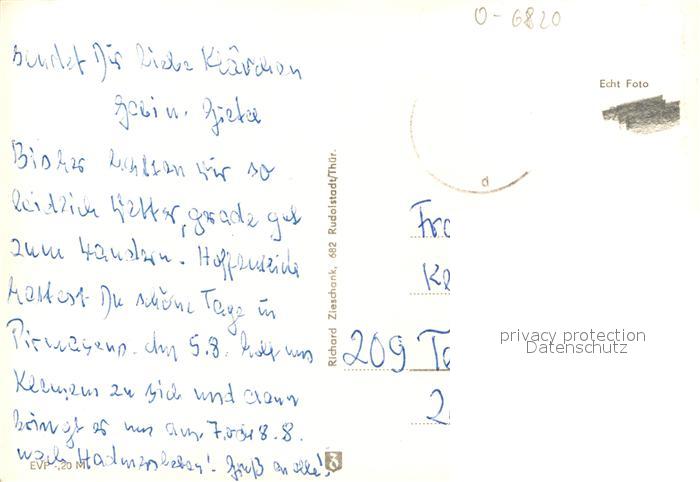 O-6820
sendet Dir liebe Klärchen
Bisher hatten wir so
leidlich Wetter, grade gut
zum Wandern. Hoffentlich
hattest Du schöne Tage in
Pirmasens. Am 5.8. holt uns
zu sich und dann
bringt er uns am 7. oder 8.8.
nach Hadmersleben! Gruß an alle!
EVP -,20 M
Richard Zieschank, 682 Rudolstadt/Thür.
Echt Foto
Fra
Kl
209 Te
2
privacy protection
Datenschutz